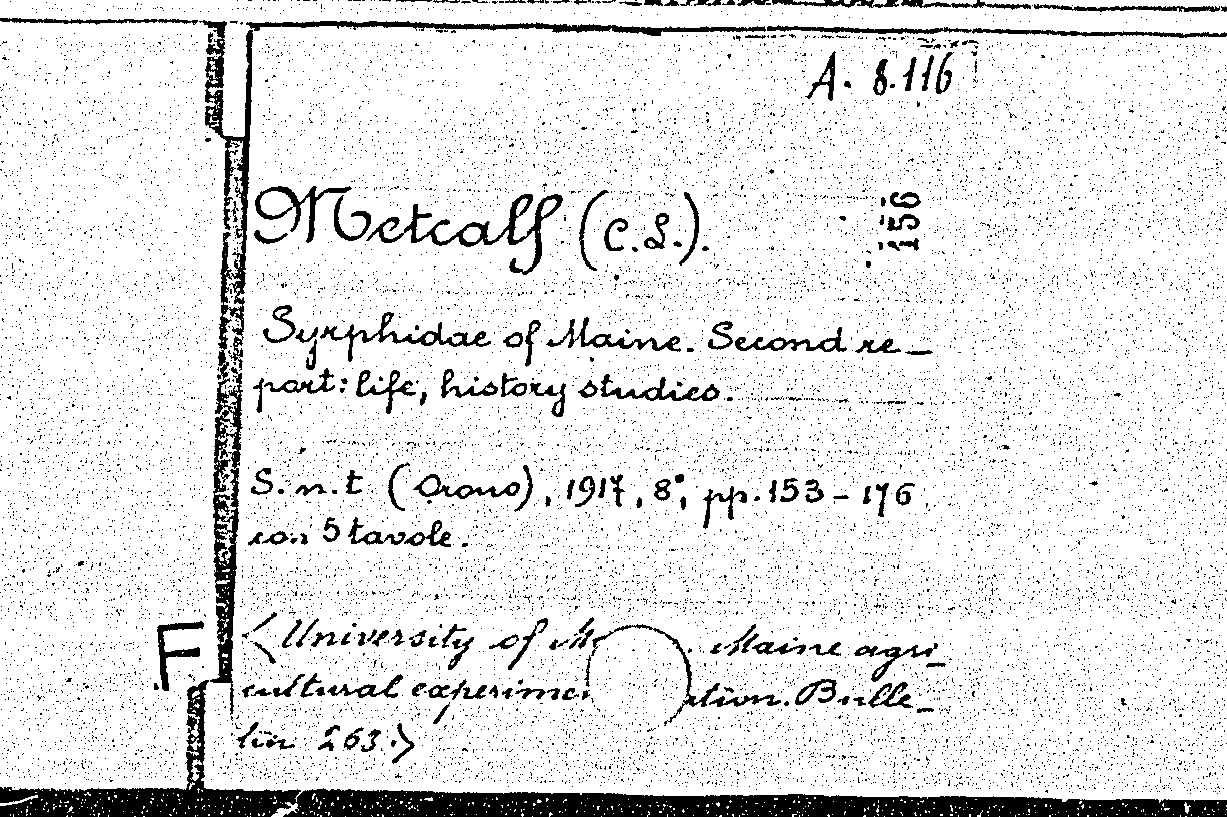 A. 8.116
156
Metcalf (C. L.).
Syrphidae of Maine. Second re-
port: life, history studies.
S. n. t (Orono), 1917, 8°, pp. 153-176
con 5 tavole.
F
<University of M . Maine agri-
cultural experime tion. Bulle-
tin 263.>